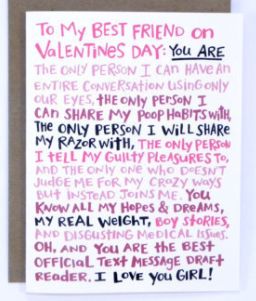 TO MY BEST FRIEND ON
VALENTINES DAY: YOU ARE
THE ONLY PERSON I CAN HAVE AN
ENTIRE CONVERSATION USING ONLY
OUR EYES, THE ONLY PERSON I
CAN SHARE MY POOP HABITS WITH,
THE ONLY PERSON I WILL SHARE
MY RAZOR WITH, THE ONLY PERSON
I TELL MY GUILTY PLEASURES TO,
AND THE ONLY ONE WHO DOESN'T
JUDGE ME FOR MY CRAZY WAYS
BUT INSTEAD JOINS ME. YOU
KNOW ALL MY HOPES & DREAMS,
MY REAL WEIGHT, BOY STORIES,
AND DISGUSTING MEDICAL ISSUES.
OH, AND YOU ARE THE BEST
OFFICIAL TEXT MESSAGE DRAFT
READER. I LOVE YOU GIRL!